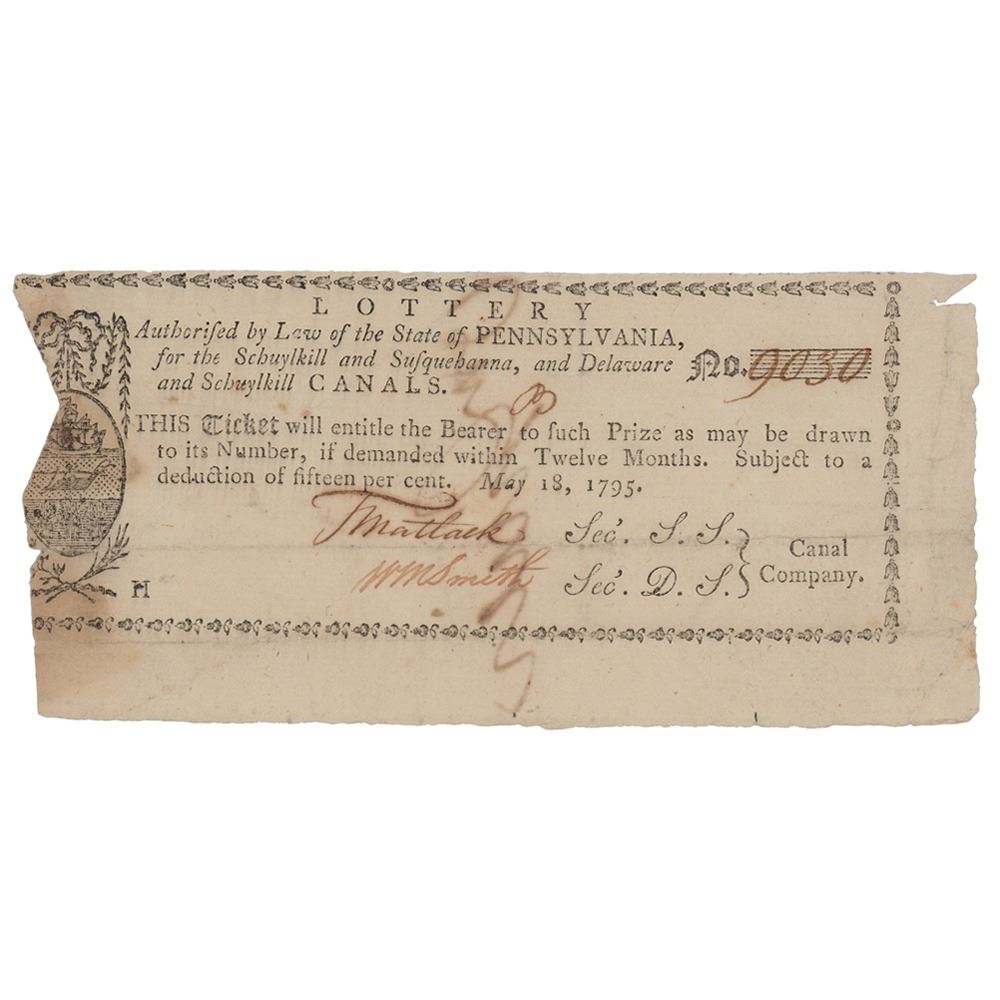 LOTTERY
Authoriſed by Law of the State of PENNSYLVANIA,
for the Schuylkill and Suſquehanna, and Delaware
and Schuylkill CANALS.
No. 9030
B
THIS Ticket will entitle the Bearer to ſuch Prize as may be drawn
to its Number, if demanded within Twelve Months. Subject to a
deduction of fifteen per cent. May 18, 1795.
TMatlack Sec. S. S.
WMSmith Sec. D. S.
Canal
Company.
H